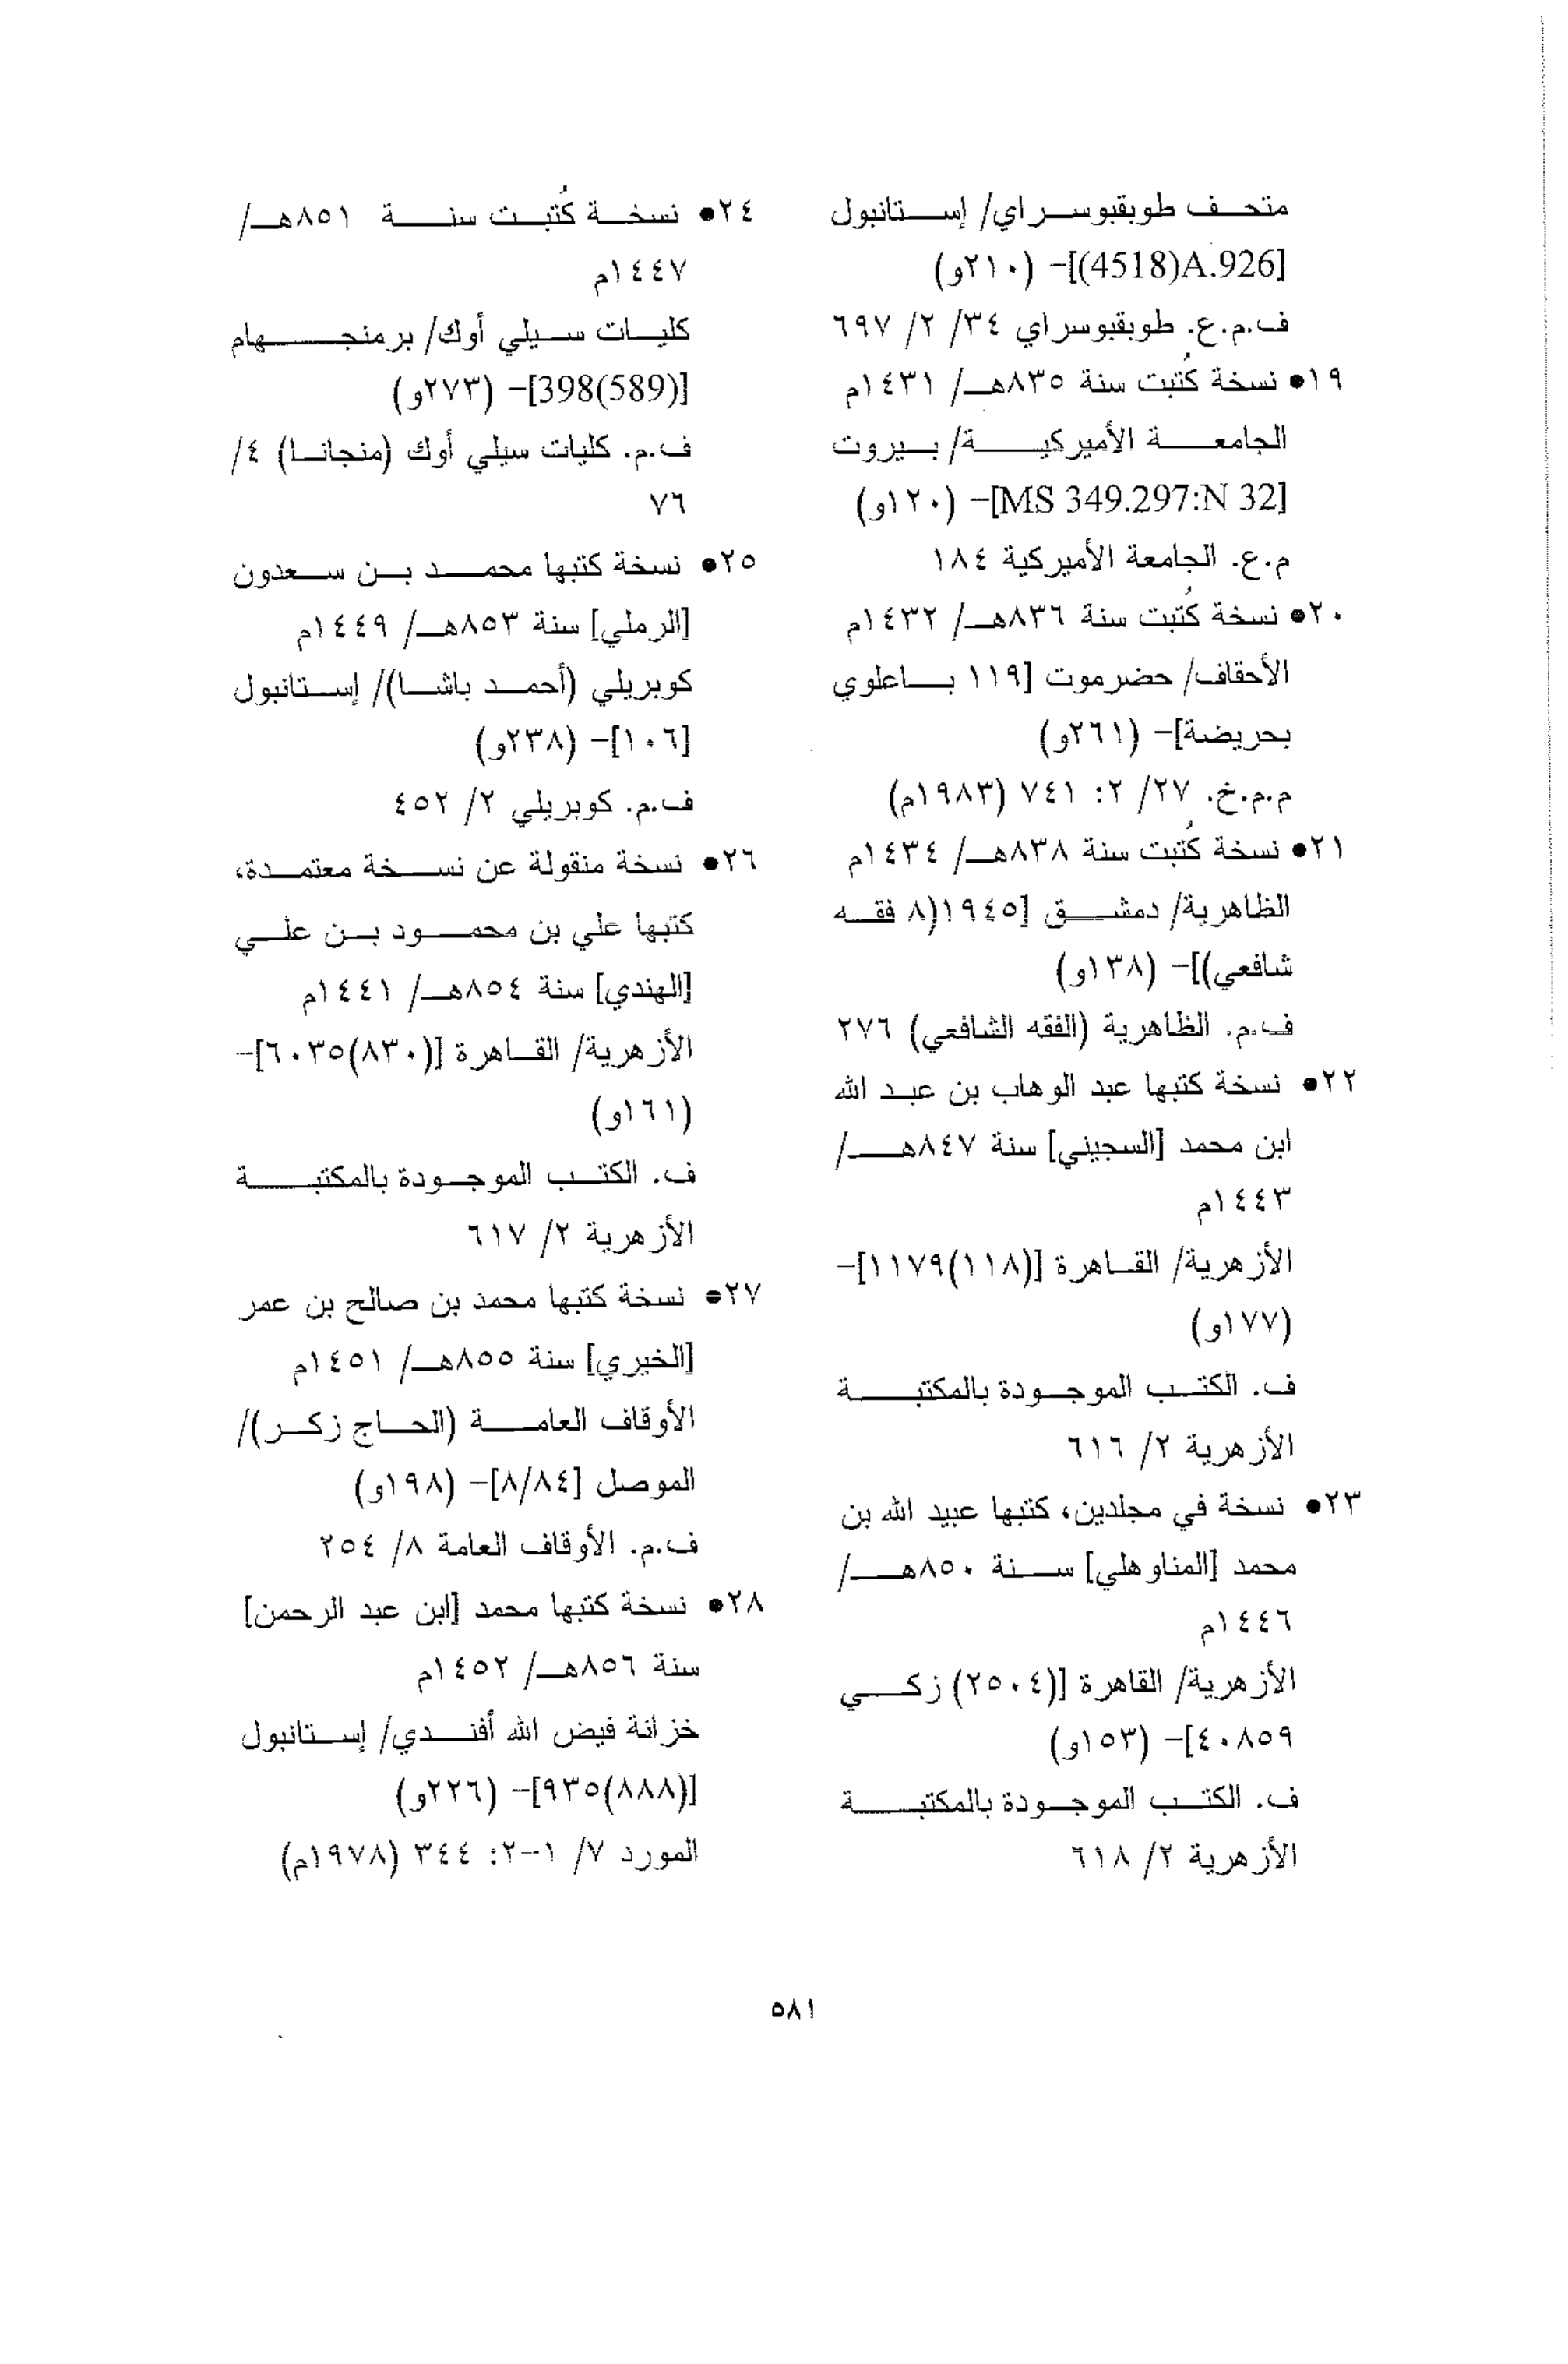 متحف طوبقبوسراي/ إستانبول
[4518)A.926)]- (٢١٠و)
ف.م.ع. طوبقبوسراي ٣٤/ ٢/ ٦٩٧
١٩• نسخة كُتبت سنة ٨٣٥هـ/ ١٤٣١م
الجامعة الأميركية/ بيروت
[MS 349.297:N 32]- (١٢٠و)
م.ع. الجامعة الأميركية ١٨٤
٢٠• نسخة كُتبت سنة ٨٣٦هـ/ ١٤٣٢م
الأحقاف/ حضرموت [١١٩ باعلوي
بحريضة]- (٢٦١و)
م.م.خ. ٢٧/ ٢: ٧٤١ (١٩٨٣م)
٢١• نسخة كُتبت سنة ٨٣٨هـ/ ١٤٣٤م
الظاهرية/ دمشق [١٩٤٥(٨ فقه
شافعي)]- (١٣٨و)
ف.م. الظاهرية (الفقه الشافعي) ٢٧٦
٢٢• نسخة كتبها عبد الوهاب بن عبد الله
ابن محمد [السجيني] سنة ٨٤٧هـ/
١٤٤٣م
الأزهرية/ القاهرة [(١١٨)١١٧٩]-
(١٧٧و)
ف. الكتب الموجودة بالمكتبة
الأزهرية ٢/ ٦١٦
٢٣• نسخة في مجلدين، كتبها عبيد الله بن
محمد [المناوهلي] سنة ٨٥٠هـ/
١٤٤٦م
الأزهرية/ القاهرة [(٢٥٠٤) زكي
٤٠٨٥٩]- (١٥٣و)
ف. الكتب الموجودة بالمكتبة
الأزهرية ٢/ ٦١٨
٢٤• نسخة كُتبت سنة ٨٥١هـ/
١٤٤٧م
كليات سيلي أوك/ برمنجهام
[398(589)]- (٢٧٣و)
ف.م. كليات سيلي أوك (منجانا) ٤/
٧٦
٢٥• نسخة كتبها محمد بن سعدون
[الرملي] سنة ٨٥٣هـ/ ١٤٤٩م
كوبريلي (أحمد باشا)/ إستانبول
[١٠٦]- (٢٣٨و)
ف.م. كوبريلي ٢/ ٤٥٢
٢٦• نسخة منقولة عن نسخة معتمدة،
كتبها علي بن محمود بن علي
[الهندي] سنة ٨٥٤هـ/ ١٤٤١م
الأزهرية/ القاهرة [(٨٣٠)٦٠٣٥]-
(١٦١و)
ف. الكتب الموجودة بالمكتبة
الأزهرية ٢/ ٦١٧
٢٧• نسخة كتبها محمد بن صالح بن عمر
[الخيري] سنة ٨٥٥هـ/ ١٤٥١م
الأوقاف العامة (الحاج زكر)/
الموصل [٨/٨٤]- (١٩٨و)
ف.م. الأوقاف العامة ٨/ ٢٥٤
٢٨• نسخة كتبها محمد [ابن عبد الرحمن]
سنة ٨٥٦هـ/ ١٤٥٢م
خزانة فيض الله أفندي/ إستانبول
[(٨٨٨)٩٣٥]- (٢٢٦و)
المورد ٧/ ١-٢: ٣٤٤ (١٩٧٨م)
٥٨١